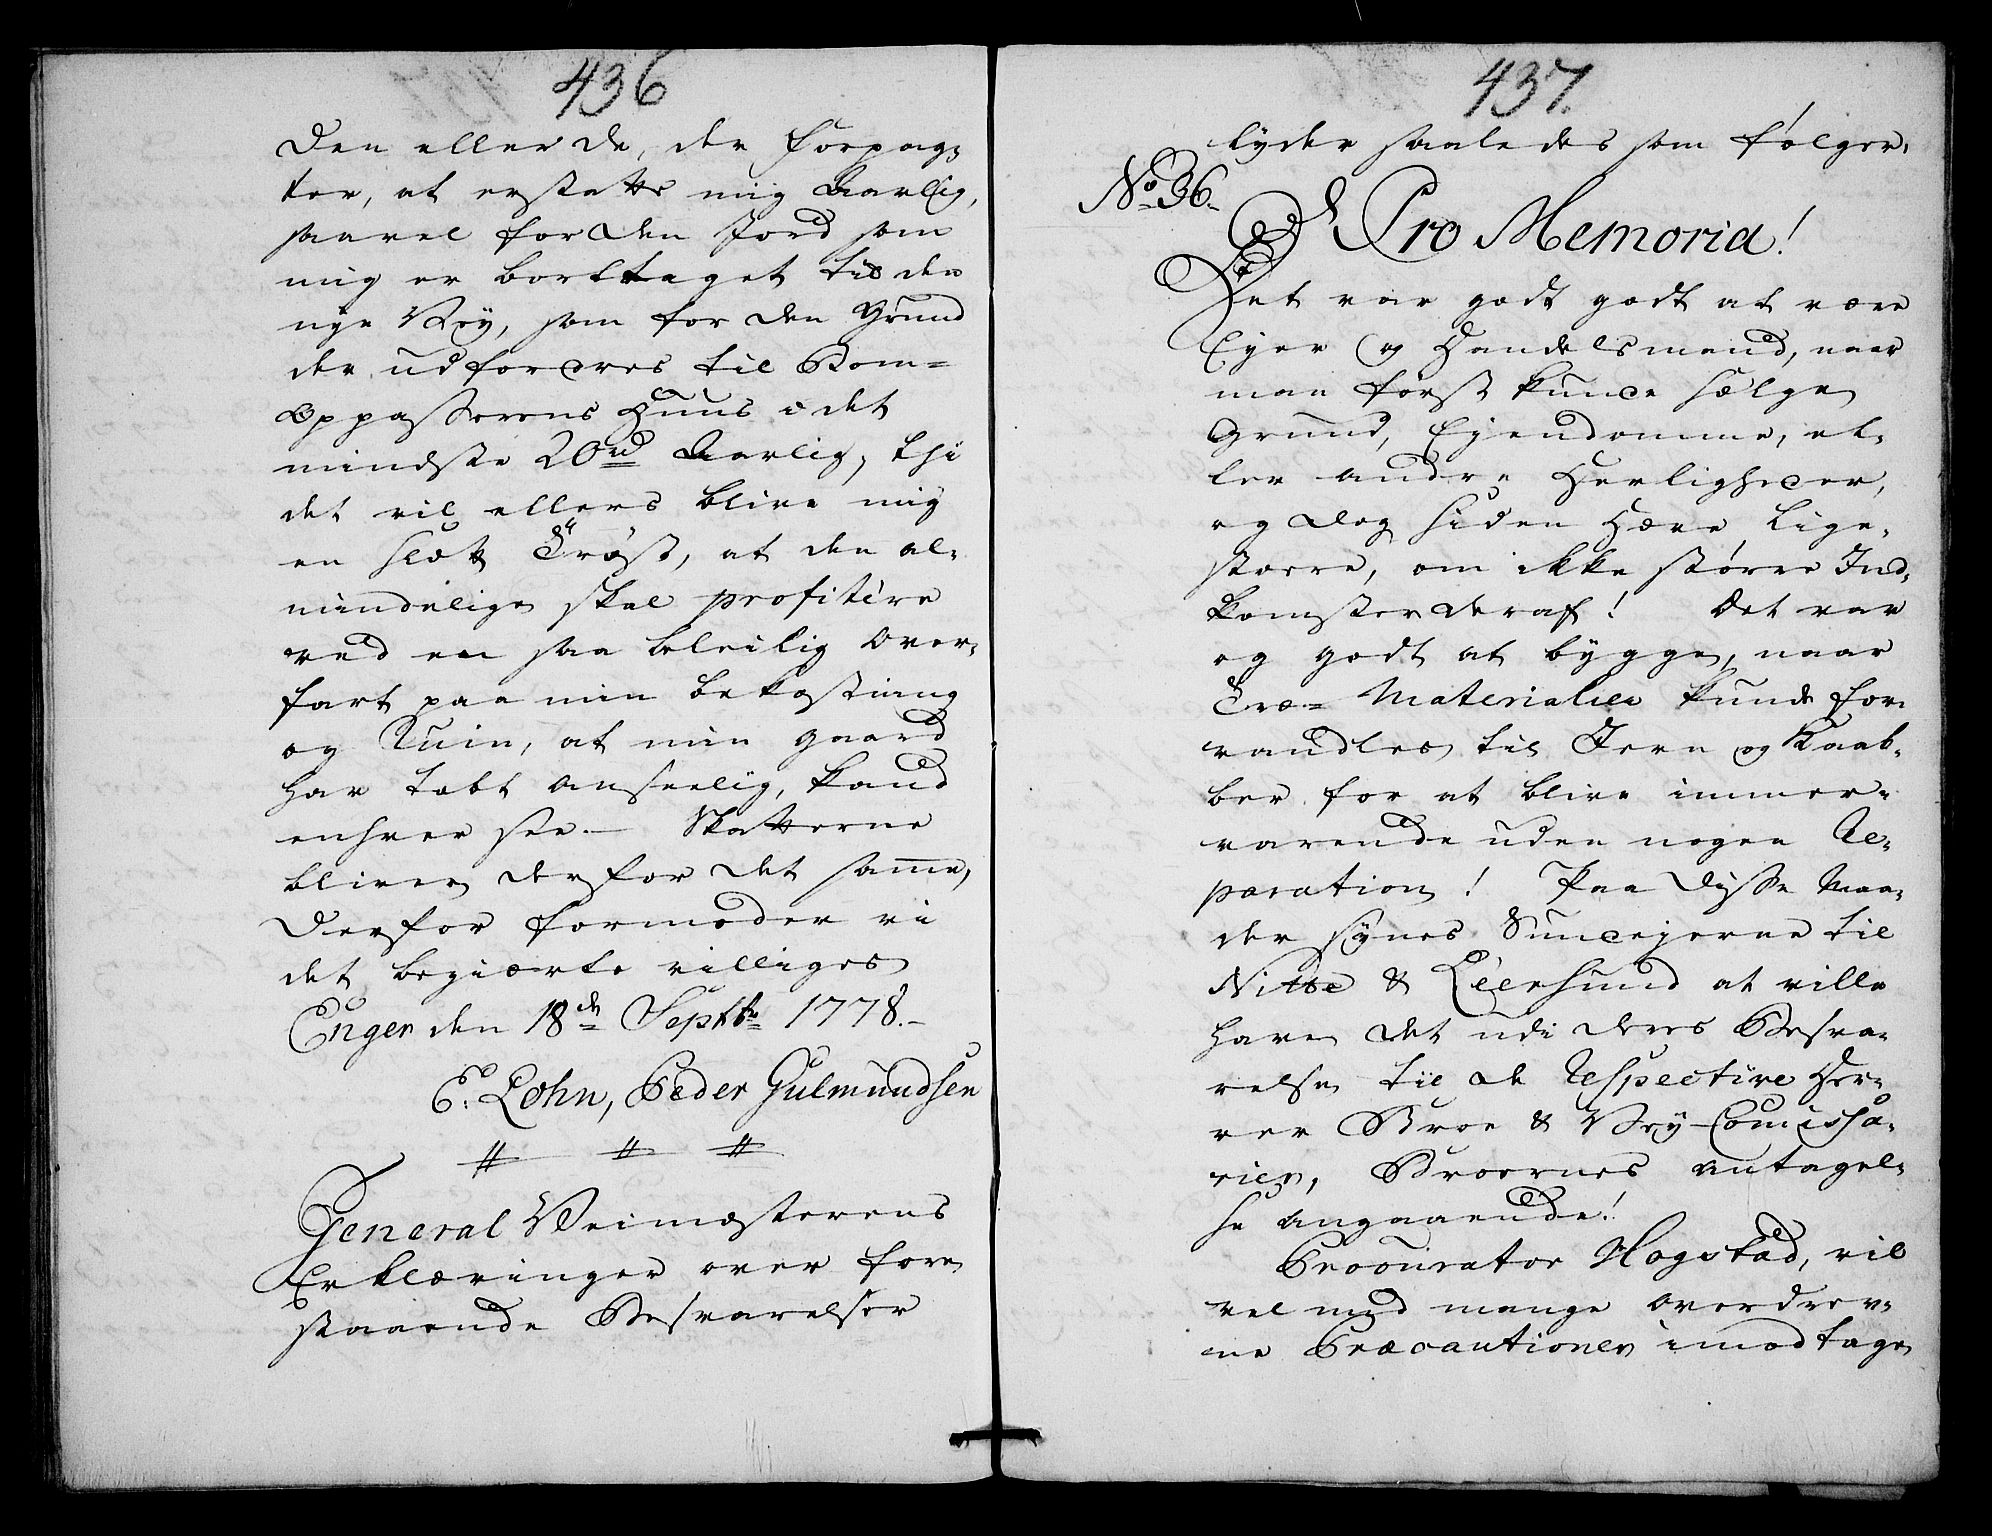 436
Den eller de, der forpag-
ter, at erstatte mig Aarlig,
saavel for den Jord som
mig er borttaget til den
nye Vey, som for den Grund
der udfordres til Bom-
Oppasserens Huus i det
mindste 20 rd Aarlig, thi
det vil ellers blive mig
en slæt Trøst, at den al-
mindelige skal profitére
ved en saa beleilig Over-
fart paa min bekostning
og Ruin, at min gaard
har tabt anseelig, kand
enhver see. — Skatterne
bliver derfor det samme,
Derfor formoder vi
det begiærte villiges
Enger den 18de Septbr 1778.-
E. Lohn, Peder Gulmundsen
General Veimesterens
Erklæringer over fore-
staaende Besvarelser
437.
lyder saaledes som følger.
No 36.
Pro Memoria!
Det var godt godt at være
Eyer og Handelsmand, naar
man først kunde sælge
Grund, Eyendomme, el-
ler andre Herligheder,
og dog siden Have lige-
større, om ikke større Ind-
komster deraf! Det var
og godt at bygge, naar
Træ- Materialier kunde for-
vandles til Jern og Kaab-
ber for at blive immer-
varende uden nogen Re-
paration! Paa disse Maa-
der synes Sundejerne til
Nitte & Léersund at ville
have det udi deres Besva-
relse til de Respective Her-
rer Broe & Vey-Comissa-
rier, Broernes antagel-
se angaaende!
Procurator Hogstad, vil
vel med mange overdrev-
ne Præcautioner imodtage